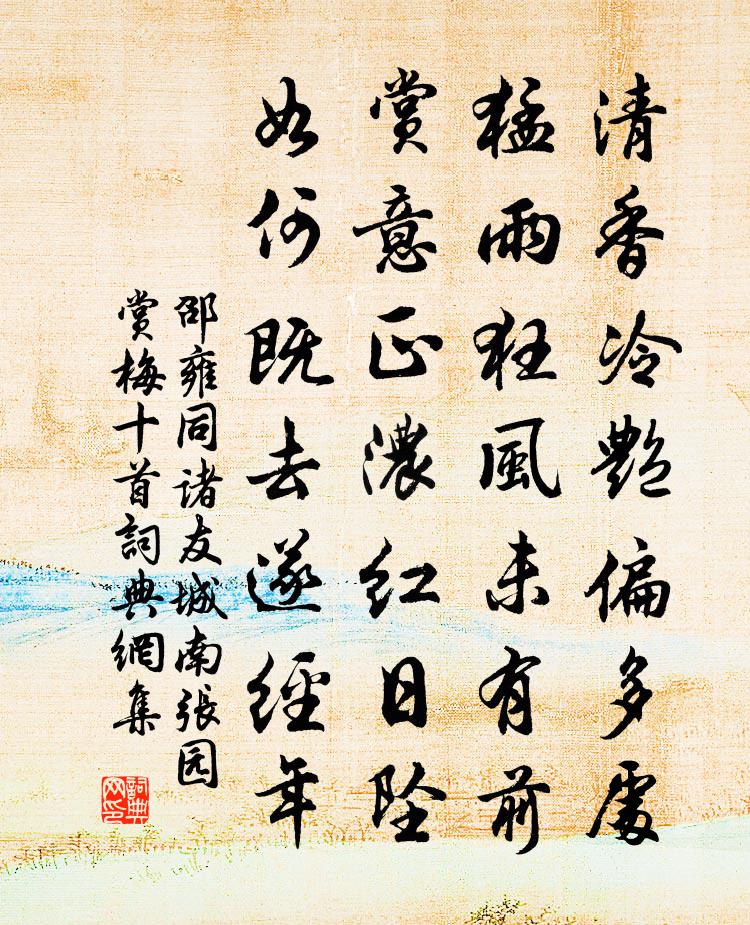 清香冷艷偏多處
猛雨狂風未有前
賞意正濃紅日墜
如何既去遂經年
邵雍同诸友城南張园
賞梅十首詞典網集
詞典
网印